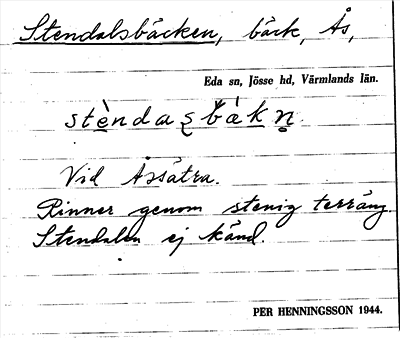 Stendalsbäcken, bäck, Ås,
Eda sn, Jösse hd, Värmlands län.
stènda ʂ bàk n̥.
Vid Åssätra.
Rinner genom stenig terräng.
Stendalen ej känd.
PER HENNINGSSON 1944.